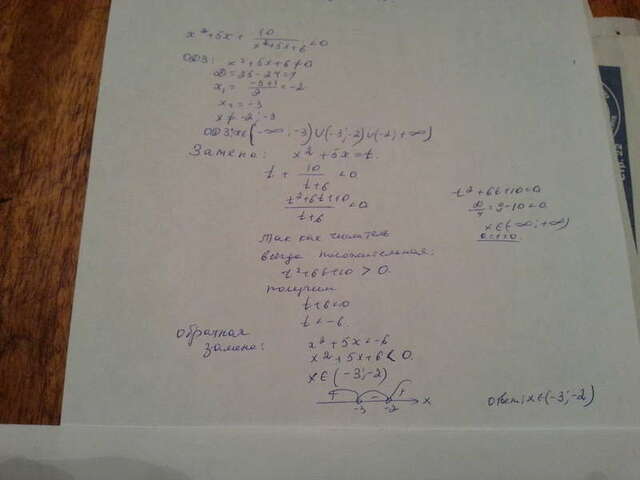 x² + 5x + 10/(x²+5x+6) < 0
ОДЗ: x² + 5x + 6 ≠ 0
D = 25 - 24 = 1
x₁ = (-5+1)/2 = -2
x₂ = -3
x ≠ -2; -3
ОДЗ: x∈(-∞; -3)∪(-3; -2)∪(-2; +∞)
Замена: x² + 5x = t.
t + 10/(t+6) < 0
(t²+6t+10)/(t+6) < 0
t² + 6t + 10 = 0
D/4 = 9 - 10 < 0
x∈(-∞; +∞)
Так как числитель
всегда положительная:
t² + 6t + 10 > 0.
получим
t + 6 < 0
t < -6.
Обратная
замена:
x² + 5x < -6
x² + 5x + 6 < 0.
x∈(-3; -2)
+ - +
-3 -2 x
Ответ: x∈(-3; -2)